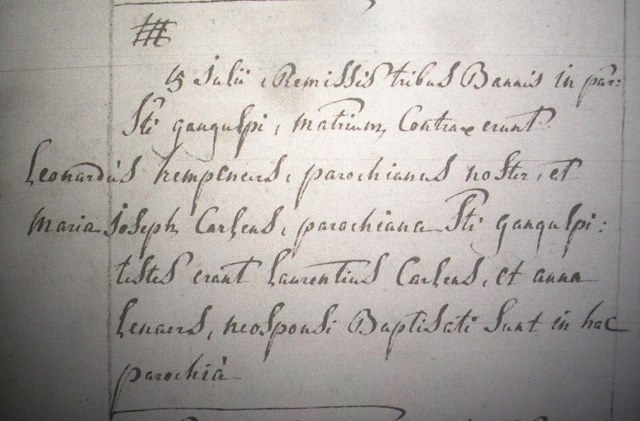 15 Julii, Remissis tribus Bannis in par:
Sti gangulpi, matrium, Contraxerunt
Leonardus kempeneers, parochianus noster, et
maria joseph Carlens, parochiana Sti gangulpi:
testes erant Laurentius Carlens, et anna
Lenaers, neosponsi Baptisati Sunt in hac
parochiâ